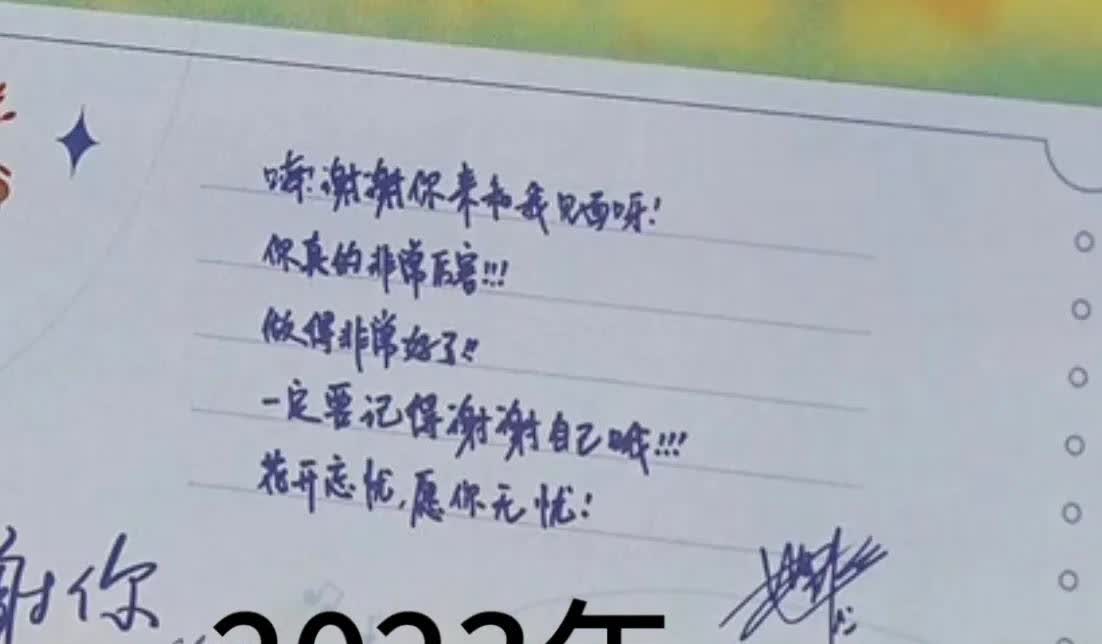 嗨!谢谢你来和我见面呀!
你真的非常厉害!!!
做得非常好了!!
一定要记得谢谢自己哦!!!
花开忘忧,愿你无忧!
谢你
2023年